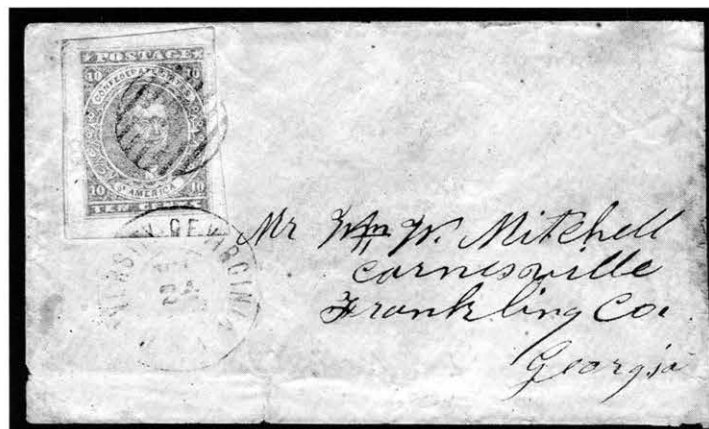 POSTAGE
10 10
CONFEDERATE STATES
OF AMERICA
10 10
TEN CENTS
UNIVERSITY OF VIRGINIA
Mr Wm W. Mitchell
Carnesville
Frankling Co.
Georgia